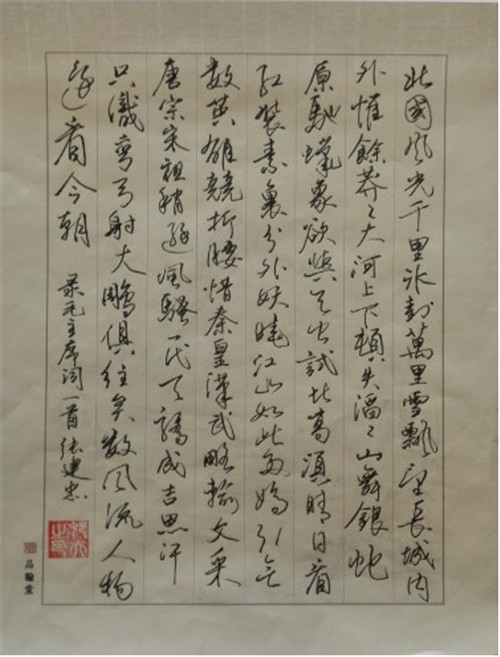 北國风光千里冰封萬里雪飄望長城内
外惟餘莽々大河上下頓失滔々山舞銀蛇
原馳蠟象欲與天公試比高須晴日看
紅裝素裹分外妖嬈江山如此多嬌引无
數英雄競折腰惜秦皇漢武略輸文采
唐宗宋祖稍遜風騷一代天驕成吉思汗
只識彎弓射大鵬俱往矣數风流人物
還看今朝 录毛主席词一首 张建忠
品翰堂